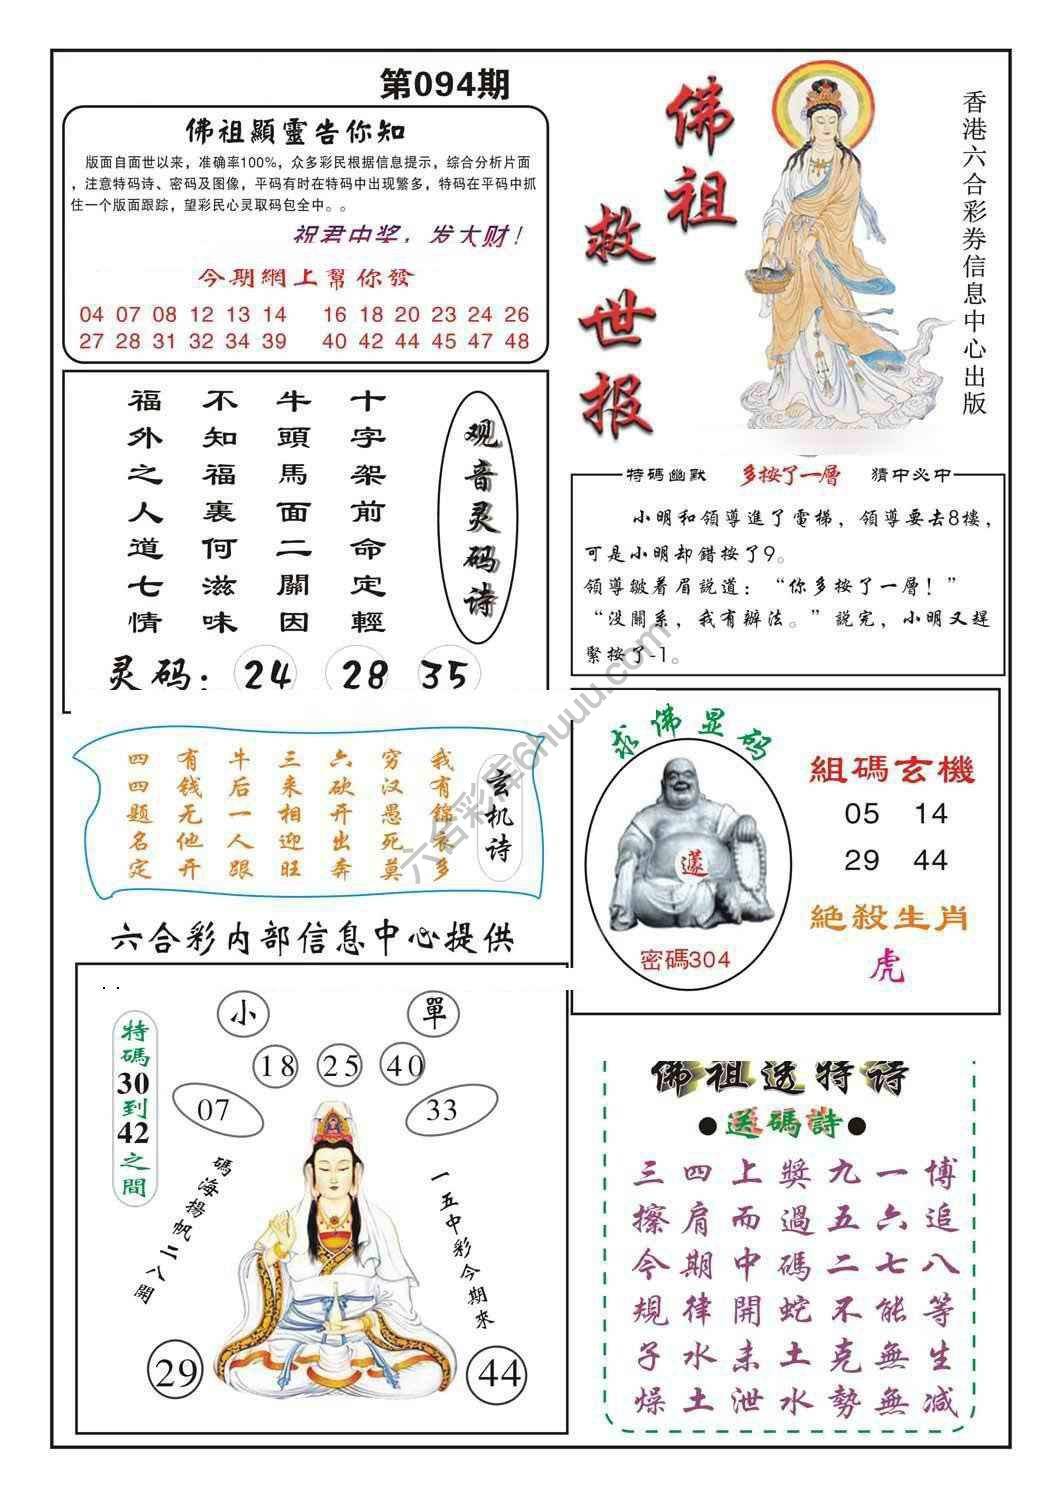 第094期
佛祖顯靈告你知
版面自面世以来，准确率100%，众多彩民根据信息提示，综合分析片面
，注意特码诗、密码及图像，平码有时在特码中出现繁多，特码在平码中抓
住一个版面跟踪，望彩民心灵取码包全中。。
祝君中奖，发大财！
今期網上幫你發
04 07 08 12 13 14 16 18 20 23 24 26
27 28 31 32 34 39 40 42 44 45 47 48
佛祖
救世报
香港六合彩券信息中心出版
观音灵码诗
十字架前命定輕
牛頭馬面二關因
不知福裏何滋味
福外之人道七情
灵码：24 28 35
特碼幽默 多按了一層 猜中必中
小明和領導進了電梯，領導要去8樓，
可是小明却錯按了9。
領導皺着眉説道：“你多按了一層！”
“没關系，我有辦法。”説完，小明又趕
緊按了-1。
玄机诗
我有錦衣多
穷汉愚死莫
六砍开出奔
三来相迎旺
牛后一人跟
有钱无他开
四四题名定
六合彩内部信息中心提供
求佛显码
蓫
密碼304
組碼玄機
05 14
29 44
絕殺生肖
虎
特碼30到42之間
小 單
18 25 40
07 33
碼海揚帆二八開
一五中彩今期來
29 44
佛祖透特诗
●送碼詩●
三四上獎九一博
擦肩而過五六追
今期中碼二七八
規律開蛇不能等
子水未土克無生
燥土泄水勢無减
六合彩库6huuu.com